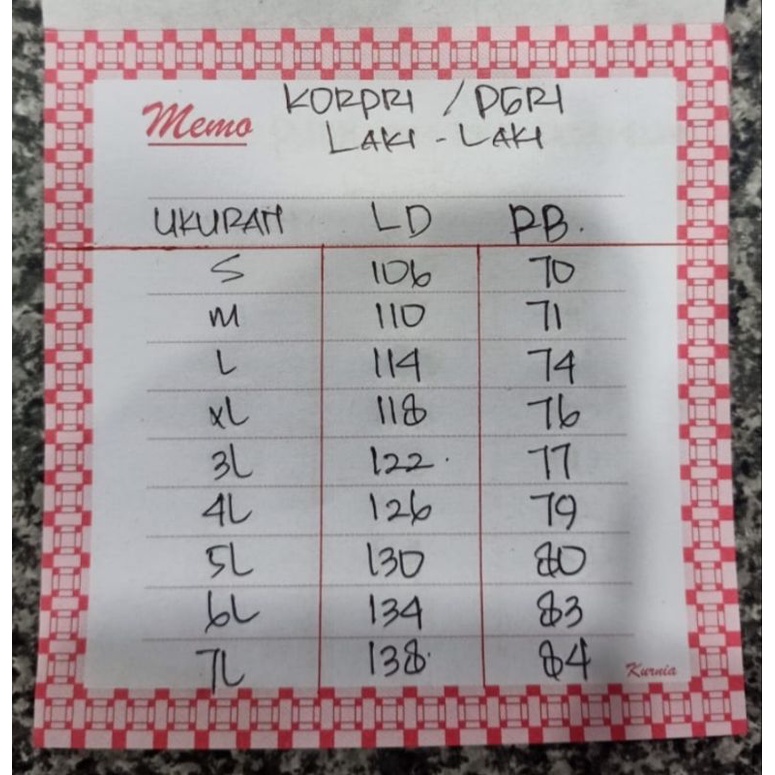 Memo
KORPRI / PGRI
LAKI - LAKI
UKURAN LD PB.
S 106 70
M 110 71
L 114 74
XL 118 76
3L 122 77
4L 126 79
5L 130 80
6L 134 83
7L 138 84
Kurnia